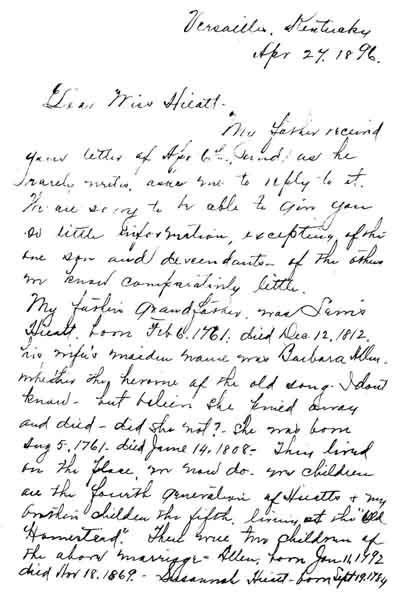 Versailles, Kentucky
Apr 27, 1896.
Dear Miss Hieatt-
My father received
your letter of Apr 6th, and, as he
rarely writes, asks me to reply to it.
We are sorry to be able to give you
so little information, excepting, of this
one son and descendants - of the others
we know comparatively little.
My father's Grandfather, was Lewis
Hieatt, born Feb 6, 1761; died Dec 12, 1812,
his wife's maiden name was Barbara Allen.
whether the heroine of the old song - I don't
know - but believe she pined away
and died - did she not? - She was born
Aug 5, 1761 - died June 14, 1808 - They lived
on the place we now do - we children
are the fourth generation of Hieatts & my
brother's children the fifth, living at the "Old
Homestead". There were two children of
the above marriage - Allen, born Jan 11, 1792
died Nov 18, 1869. - Susannah Hieatt - born Sept 19, 1784